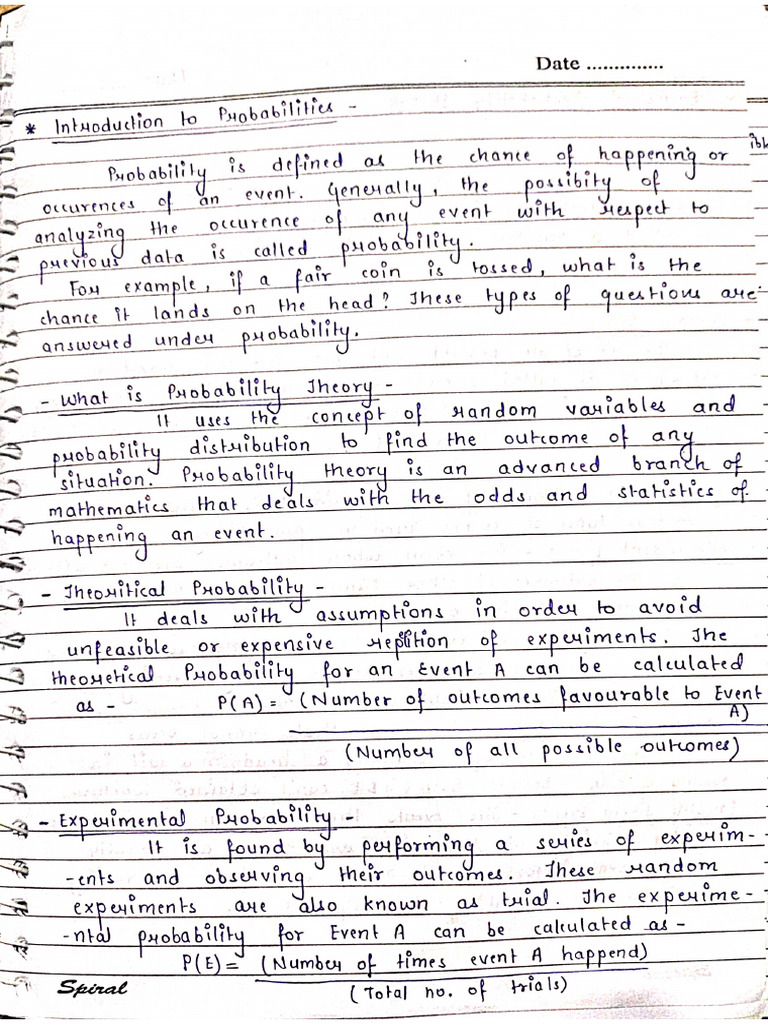 Date ..............
* Introduction to Probabilities -
ibl
Probability is defined as the chance of happening or
occurences of an event. Generally, the possibity of
analyzing the occurence of any event with respect to
previous data is called probability.
For example, if a fair coin is tossed, what is the
chance it lands on the head? These types of questions are
answered under probability.
- What is Probability Theory -
It uses the concept of random variables and
probability distribution to find the outcome of any
situation. Probability theory is an advanced branch of
mathematics that deals with the odds and statistics of
happening an event.
- Theoritical Probability -
It deals with assumptions in order to avoid
unfeasible or expensive repitition of experiments. The
theoretical Probability for an Event A can be calculated
as - P(A) = (Number of outcomes favourable to Event
A)
(Number of all possible outcomes)
- Experimental Probability -
It is found by performing a series of experim-
-ents and observing their outcomes. These random
experiments are also known as trial. The experime-
-ntal probability for Event A can be calculated as -
P(E) = (Number of times event A happend)
(Total no. of trials)
Spiral